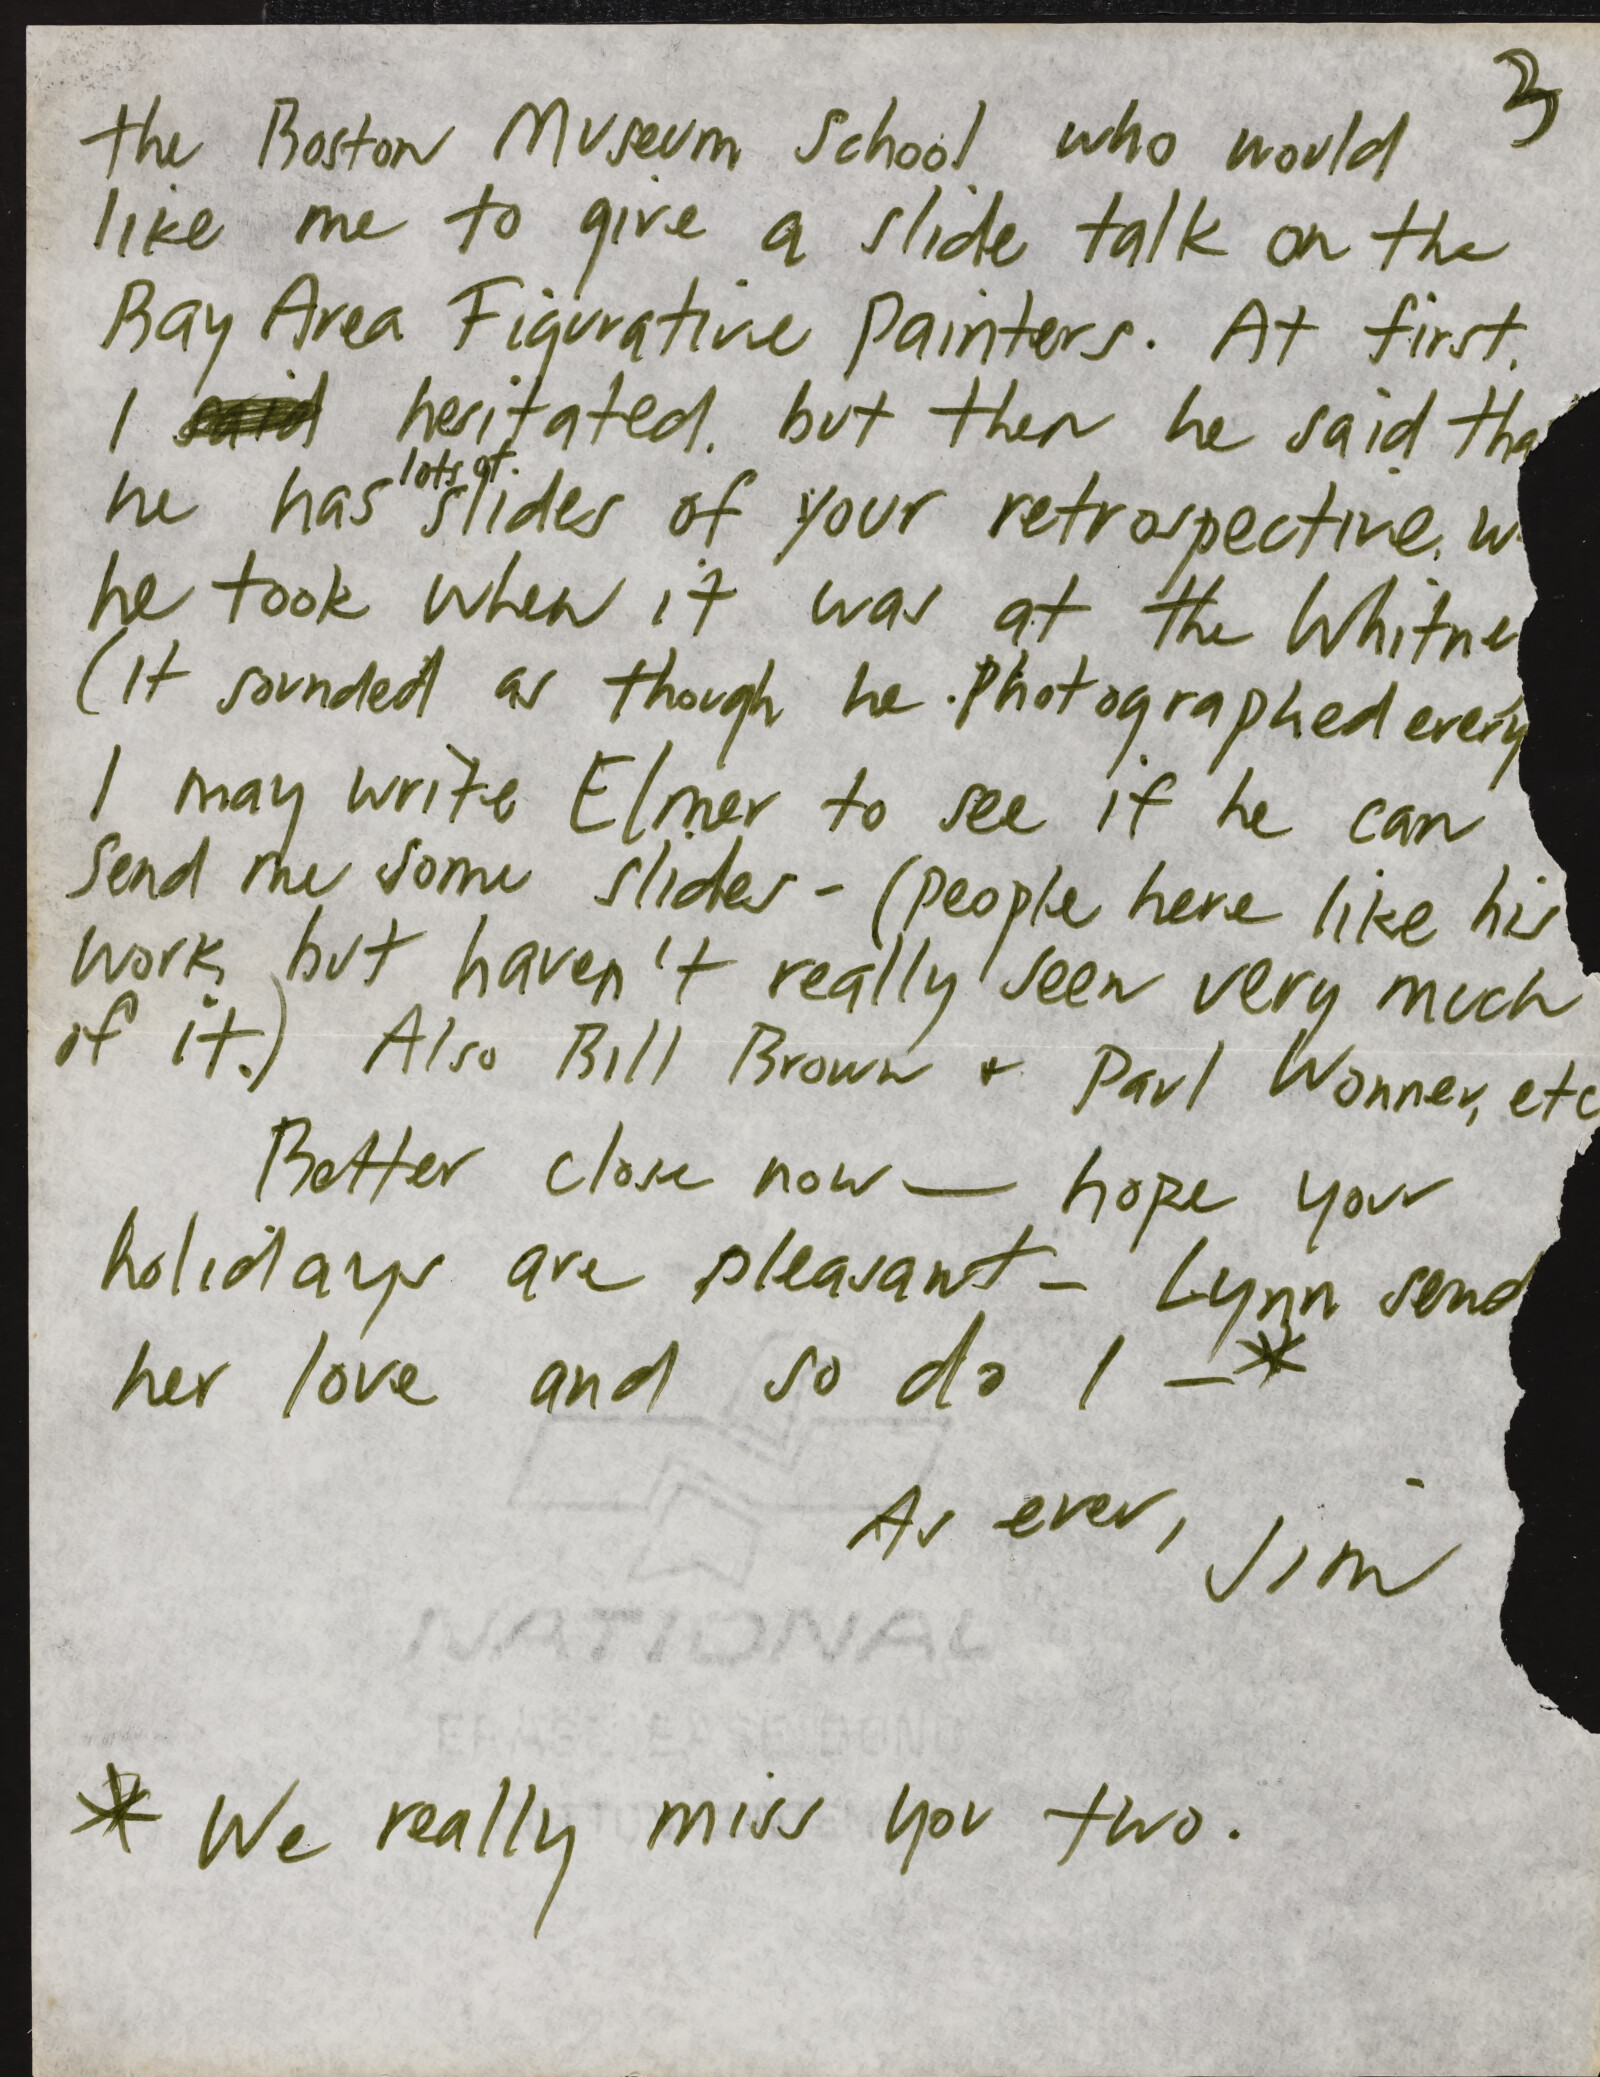 3
the Boston Museum School who would
like me to give a slide talk on the
Bay Area Figurative Painters. At first,
I said hesitated, but then he said tha
lots of
he has slides of your retrospective, w
he took when it was at the Whitne
(it sounded as though he photographed every
I may write Elmer to see if he can
send me some slides - (people here like his
work, but haven't really seen very much
of it.) Also Bill Brown + Paul Wonner, etc
Better close now — hope your
holidays are pleasant - Lynn send
her love and so do I - *
As ever, Jim
NATIONAL
* We really miss you two.